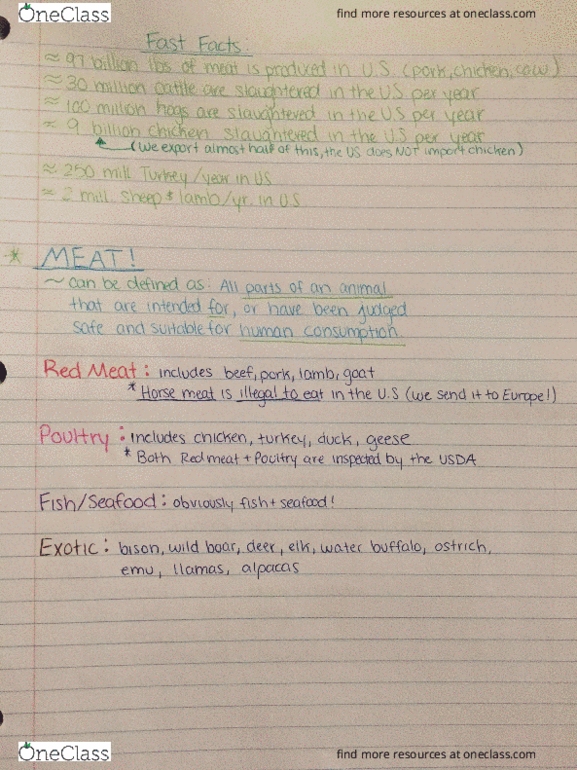 OneClass
find more resources at oneclass.com
Fast Facts:
≈ 97 billion lbs of meat is produced in U.S. (pork, chicken, cow)
≈ 30 million cattle are slaughtered in the US per year
≈ 100 million hogs are slaughtered in the US per year
≈ 9 billion chicken slaughtered in the US per year
(we export almost half of this, the US does NOT import chicken)
≈ 250 mill Turkey/year in US
≈ 2 mill. sheep & lamb/yr. in US
* MEAT!
~ can be defined as: All parts of an animal
that are intended for, or have been judged
safe and suitable for human consumption.
Red Meat: includes beef, pork, lamb, goat
* Horse meat is illegal to eat in the U.S (we send it to Europe!)
Poultry: includes chicken, turkey, duck, geese
* Both Red meat + Poultry are inspected by the USDA
Fish/Seafood: obviously fish + seafood!
Exotic: bison, wild boar, deer, elk, water buffalo, ostrich,
emu, llamas, alpacas
OneClass
find more resources at oneclass.com